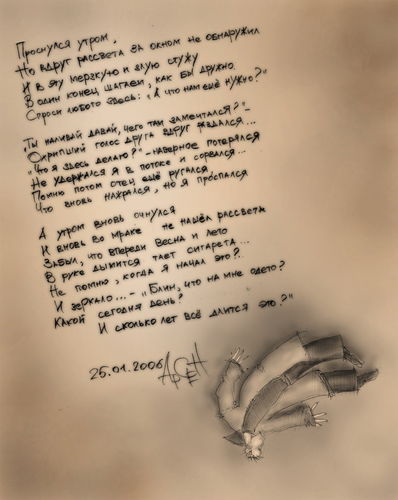 Проснулся утром,
Но вдруг рассвета за окном не обнаружил
И в эту мерзкую и злую стужу
В один конец шагаем, как бы дружно.
Спроси любого здесь: „А что нам ещё нужно?"
"Ты наливай давай, чего там замечтался?"-
Охрипший голос друга вдруг раздался...
"Что я здесь делаю?" - наверное потерялся
Не удержался я в потоке и сорвался...
Помню потом отец ещё ругался
Что вновь нажрался, но я проспался
А утром вновь очнулся
И вновь во мраке не нашёл рассвета
Забыл, что впереди весна и лето
В руке дымится тает сигарета...
Не помню, когда я начал это?
И зеркало... - „Блин, что на мне одето?
Какой сегодня день?
И сколько лет всё длится это?"
25.01.2006 АрСЕН